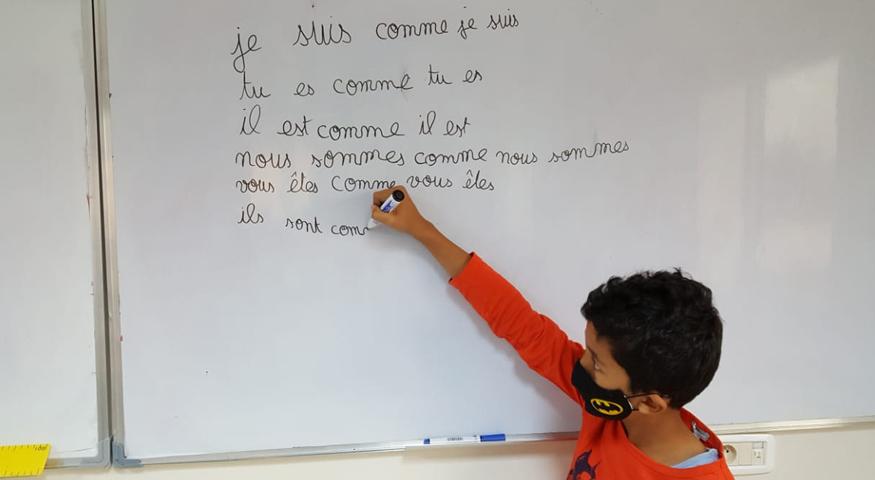 je suis comme je suis
tu es comme tu es
il est comme il est
nous sommes comme nous sommes
vous êtes comme vous êtes
ils sont com